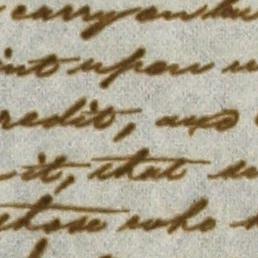 carry on bu
int upon
redit, and
it, that
those who